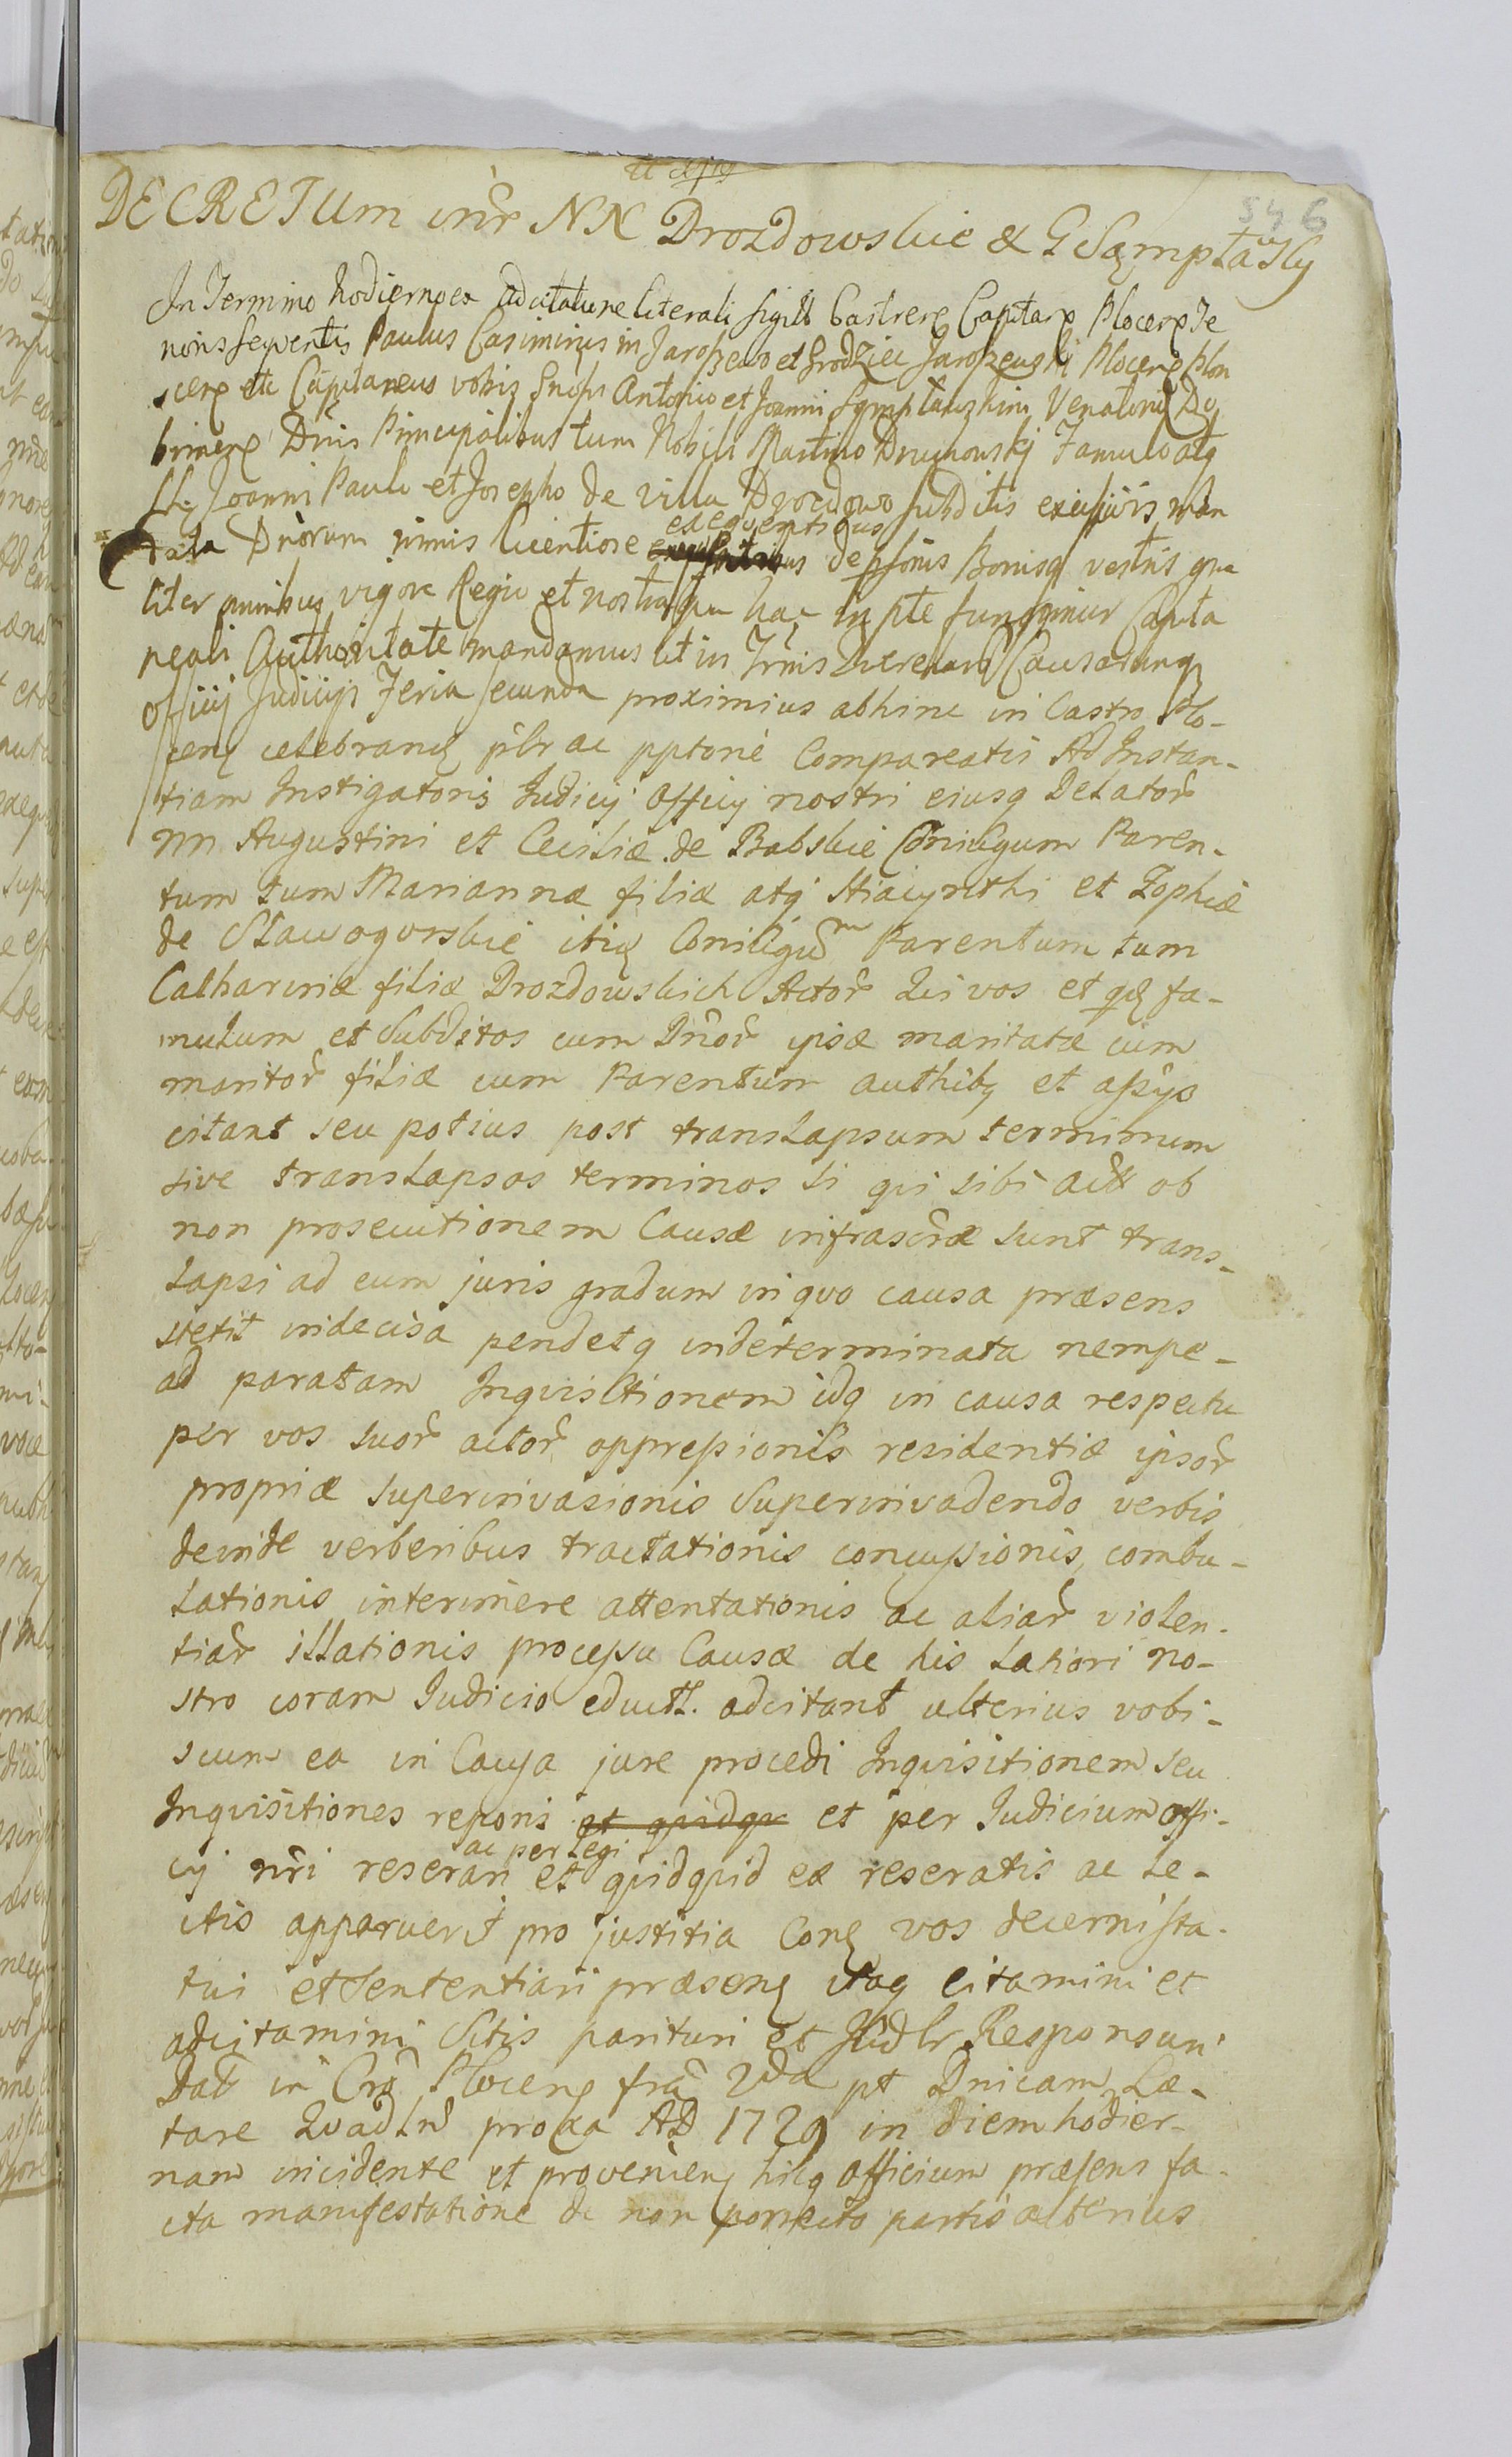 546
DECRETUm inr NN Drozdowskie & G Sęmpławsky
In Termino hodierno ex adcitatione literali sigillo Castren Capitan Plocen Te
noris sequentis Paulus Casimirus in Jaroszewo et Grodziec Jaroszewski Plocen Plon
scen etc Capitaneus vobis Gnosis Antonio et Joanni Sęmpławskim Venatorid Do
brinen Dnis Principalibus tum Nobili Martino Druchowskj Famulo atq
Joanni Paulo et Josepho de villa Drozdowo subditis eiusius man
exequentibus
data Dnorum nimis licentiose de psonis Bonisq vestris gna
liter omnibus vigore Regia et nostra qua hac in pte fungimur Capita
neali Authoritate mandamus ut in Trnis Querelarum Causarumq
Officij Judicijs Feria secunda proximius abhinc in Castro Plo-
cen celebrand plr ac pptorie Compareatis Ad Instan-
tiam Instigatoris Judicij Officij nostri eiusq Delator
nn Augustini et Ceciliæ de Babskie Coniugum Paren-
tum tum Mariannæ filiæ atq Hiacynthi et Zophiæ
de Sławogorskie itid Coniugum Parentum tum
Catharinæ filiæ Drozdowskich Actor Qui vos et qd fa-
mulum et Subditos cum Dnor ipsæ maritatæ cum
maritor filiæ cum Parentum authib et assys
citant seu potius post translapsum terminum
sive translapsos terminos si qui sibi actt ob
non prosecutionem Causæ infrascræ sunt trans-
lapsi ad eum juris gradum in quo causa præsens
stetit indecisa pendetq indeterminata nempe-
ad paratam Inquisitionem idq in causa respectu
per vos suor actor oppressionis residentiæ ipsor
propriæ superinvasionis Superinvadendo verbis
deinde verberibus tractationis concussionis, combu-
lationis interimere attentationis ac aliar violen-
tiar illationis processu Causæ de his latiori no-
stro coram Judicio eductt. adcitant ulterius vobi-
scum ea in Causa jure procedi Inquisitionem seu
Inquisitiones reponi et quidqu et per Judicium offi-
ac per legi
cij nri reserari et quidquid ex reseratis ac le-
ctis apparuerit pro justitia Con vos decerni sta-
tui et Sententiari præsen itaq citamini et
adcitamini Sitis parituri et Judlr Responsuri
Dat in Cro Plocen fra 2da pt Dnicam Læ-
tare Quadlm proxa AD 1729 in diem hodier-
nam incidente et provenien hicq Officium præsens fa-
cta manifestatione de non partis alterius